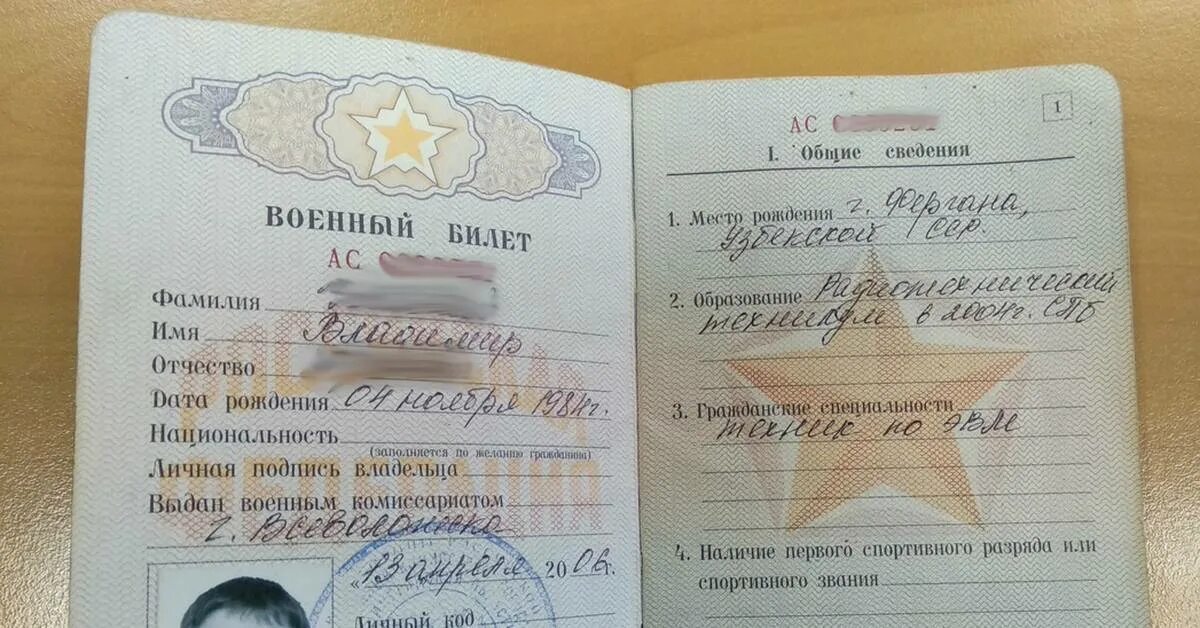 ВОЕННЫЙ БИЛЕТ
АС
Фамилия
Имя Владимир
Отчество
Дата рождения 04 ноября 1984г.
Национальность
(заполняется по желанию гражданина)
Личная подпись владельца
Выдан военным комиссариатом
г. Всеволожска
"13 апреля 2006г.
Личный код
1
АС
I. Общие сведения
1. Место рождения г. Фергана,
Узбекской ССР.
2. Образование Радиотехнический
техникум в 2004г. СПб
3. Гражданские специальности
техник по ЭВМ
4. Наличие первого спортивного разряда или
спортивного звания